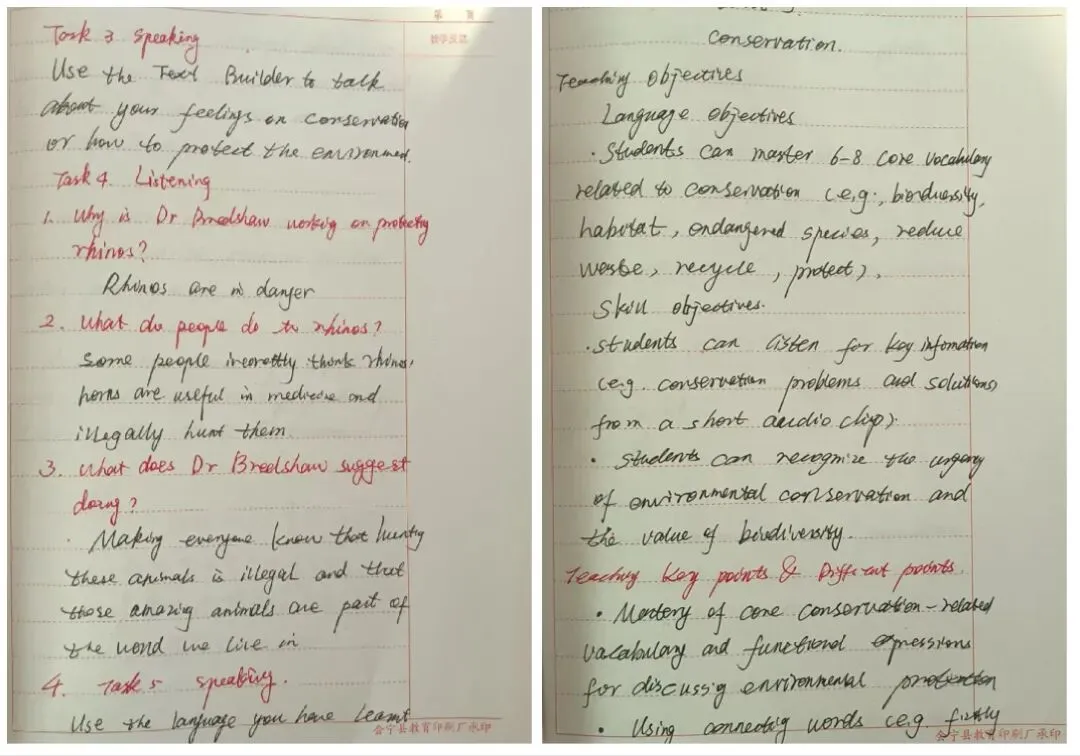 第 页
教学反思
Task 3 Speaking
Use the Text Builder to talk
about your feelings on conservation
or how to protect the environmed.
Task 4 Listening
1. Why is Dr Bradshaw working on protecting
rhinos?
Rhinos are in danger
2. What do people do to rhinos?
Some people incorrettly think rhinos'
horns are useful in medicine and
illegally hunt them.
3. What does Dr Bradshaw suggest
doing?
Making everyone know that hunting
these animals is illegal and that
these amazing animals are part of
the world we live in
4. Task 5 speaking.
Use the language you have learnt
会宁县教育印刷厂承印
Conservation.
Teaching Objectives
Language objectives
· Students can master 6-8 core vocabulary
related to conservation (e.g., biodiversity,
habitat, endangered species, reduce
waste, recycle, protect),
Skill objectives.
· Students can listen for key infomation
(e.g. conservation problems and solutions,
from a short audio clip)
· Students can recognize the urgency
of environmental conservation and
the value of biodiversity.
Teaching Key points & Difficut points.
· Mastery of core conservation-related
vocabulary and functional expressions
for discussig environmental protection
· Using connecting words (e.g. firstly
会宁县教育印刷厂承印